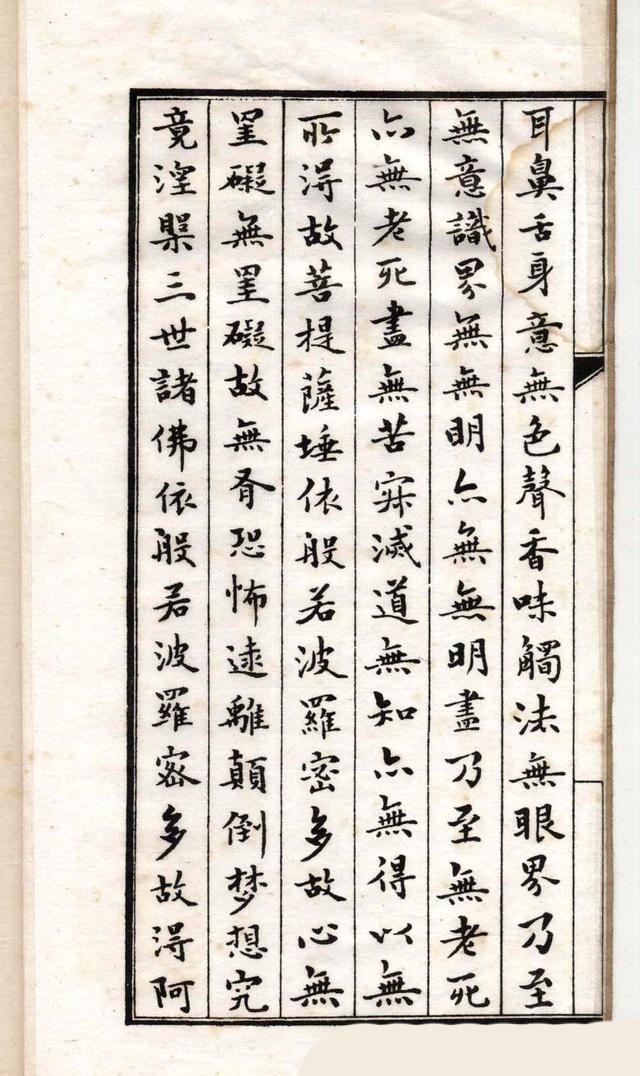 耳鼻舌身意無色聲香味觸法無眼界乃至
無意識界無無明亦無無明盡乃至無老死
亦無老死盡無苦寂滅道無知亦無得以無
所淂故菩提薩埵依般若波羅密多故心無
罣礙無罣礙故無有恐怖遠離顛倒梦想究
竟涅槃三世諸佛依般若波羅密多故淂阿